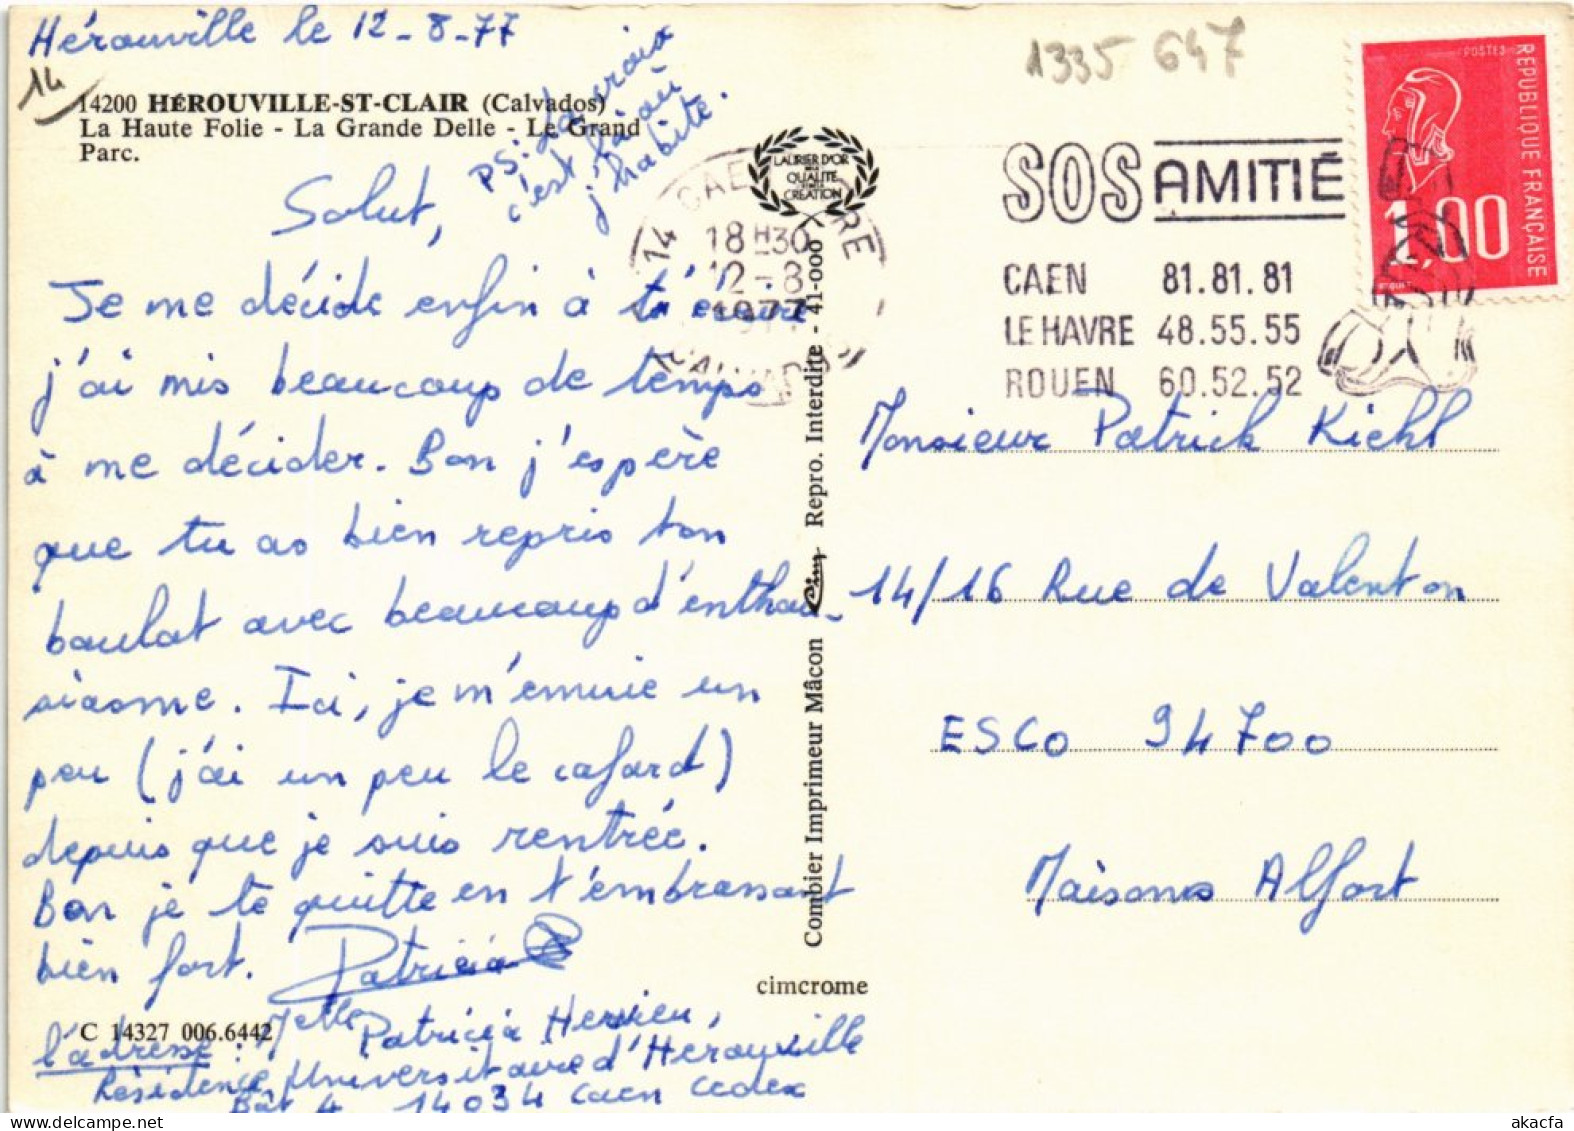 Hérouville le 12-8-77
14
14200 HÉROUVILLE-ST-CLAIR (Calvados)
La Haute Folie - La Grande Delle - Le Grand
Parc.
PS: La croix
c'est là où
j'habite.
Salut,
Je me décide enfin à t'écrire
j'ai mis beaucoup de temps
à me décider. Bon j'espère
que tu as bien repris ton
boulot avec beaucoup d'enthou-
siasme. Ici, je m'ennuie un
peu (j'ai un peu le cafard)
depuis que je suis rentrée.
Bon je te quitte en t'embrassant
bien fort. Patricia
C 14327 006.6442
l'adresse : Melle Patricia Hervieu,
Résidence Universitaire d'Hérouville
Bât A 14034 Caen Cedex
LAURIER D'OR
QUALITÉ
CRÉATION
14 CAEN GARE
18H30
12-8
1977
CALVADOS
Combier Imprimeur Mâcon Cim Repro. Interdite - 41-000
cimcrome
1335 647
SOS AMITIÉ
CAEN 81.81.81
LE HAVRE 48.55.55
ROUEN 60.52.52
POSTES
REPUBLIQUE FRANÇAISE
1,00
Monsieur Patrick Kiehl
14/16 Rue de Valenton
ESCO 94700
Maisons Alfort
akacfa